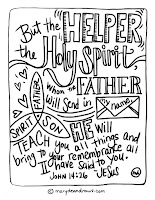 But the "HELPER,
the Holy Spirit,
Whom the FATHER
Will Send in My name,
FATHER
SPIRIT
SON
HE Will
TEACH you all things and
bring to your remembrance all
I have said to you.
JOHN 14:26 JESUS
© marydeandraws.com